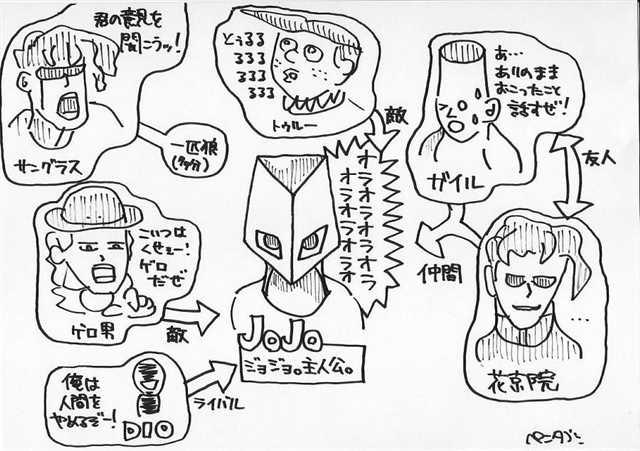 君の意見を
聞こうッ！
サングラス
一匹狼
(多分)
とぅるる
るるる
るるる
るるる
トゥルー
敵
あ…
ありのまま
おこったこと
話すぜ！
ガイル
友人
仲間
…
花京院
オラオラ
オラオラオラ
オラオラオラ
オラオラオ
こいつは
くせぇー！
ゲロ
だぜ
ゲロ男
敵
JoJo
ジョジョ。主人公。
俺は
人間を
やめるぞー！
DIO
ライバル